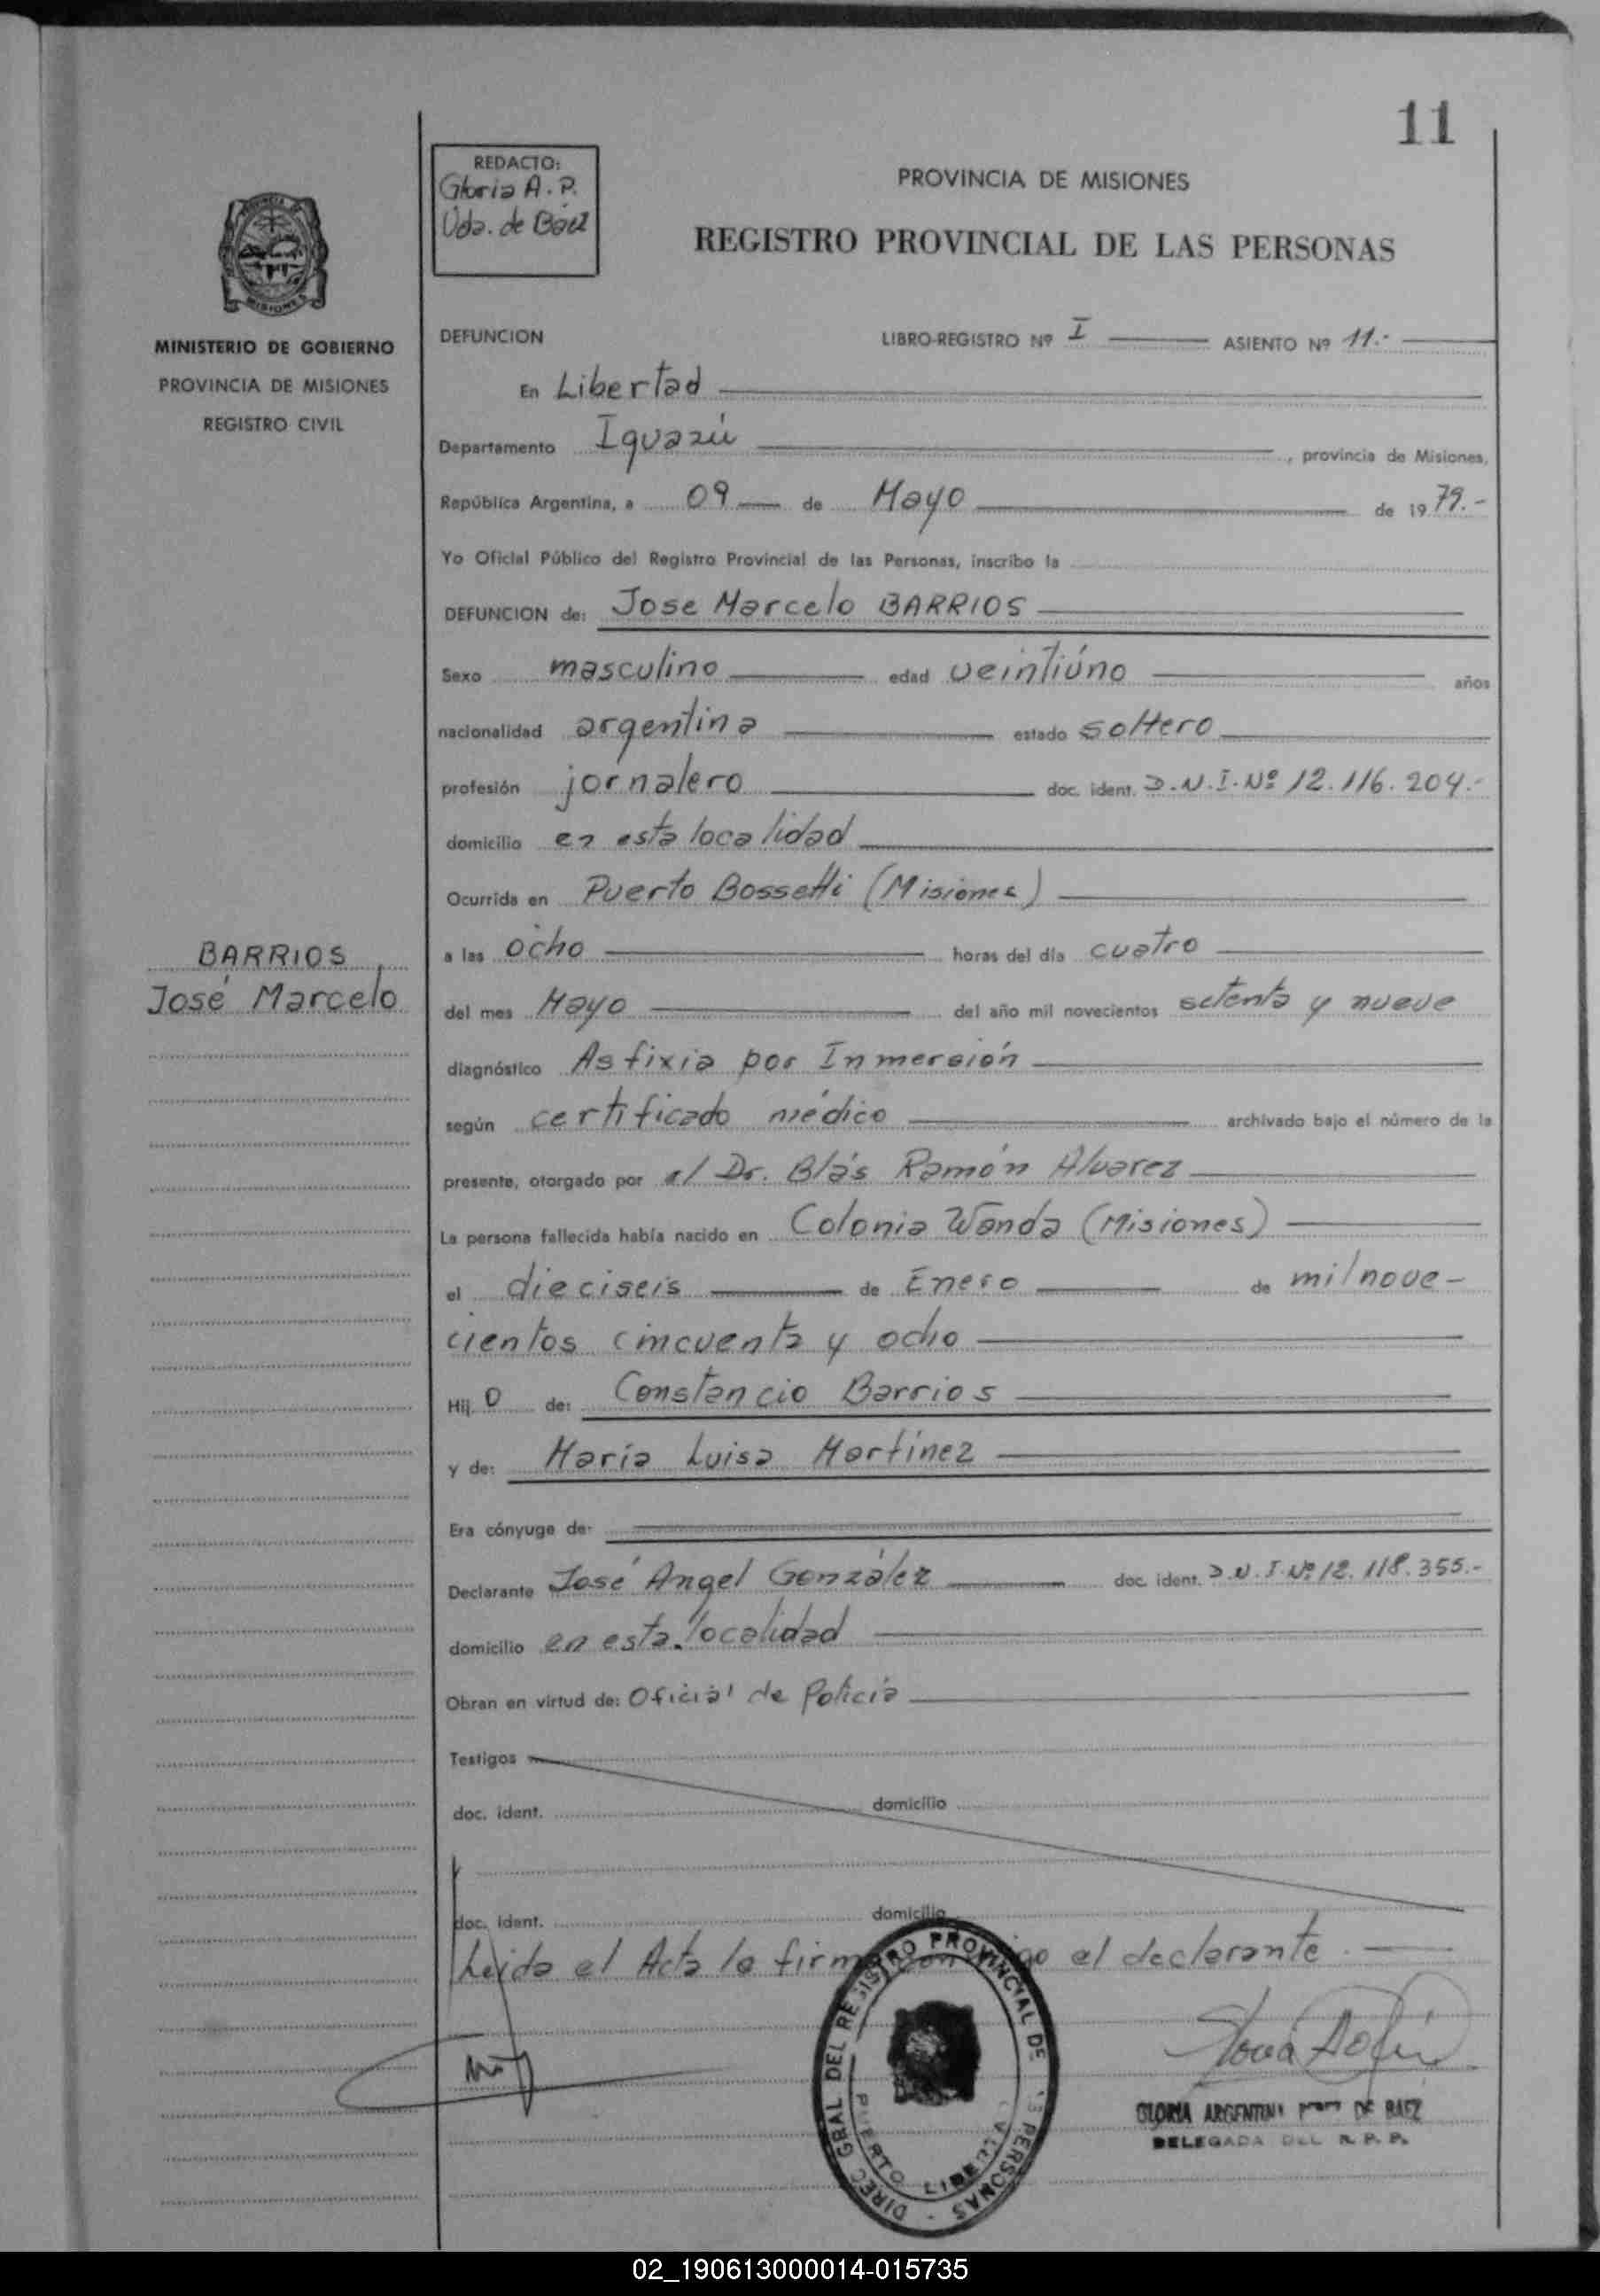 11
REDACTO:
Gloria A. P.
Vda. de Báez
PROVINCIA DE MISIONES
REGISTRO PROVINCIAL DE LAS PERSONAS
MISIONES
MINISTERIO DE GOBIERNO
PROVINCIA DE MISIONES
REGISTRO CIVIL
DEFUNCION LIBRO-REGISTRO Nº I ASIENTO Nº 11.-
En Libertad
Departamento Iguazú, provincia de Misiones,
República Argentina, a 09 de Mayo de 1979.-
Yo Oficial Público del Registro Provincial de las Personas, inscribo la
DEFUNCION de: Jose Marcelo BARRIOS
Sexo masculino edad veintiúno años
nacionalidad argentina estado soltero
profesión jornalero doc. ident. D.N.I.Nº 12.116.204.-
domicilio en esta localidad
Ocurrida en Puerto Bossetti (Misiones)
BARRIOS,
José Marcelo
a las ocho horas del día cuatro
del mes Mayo del año mil novecientos setenta y nueve
diagnóstico Asfixia por Inmersión
según certificado médico archivado bajo el número de la
presente, otorgado por el Dr. Blás Ramón Alvarez
La persona fallecida había nacido en Colonia Wanda (Misiones)
el dieciseis de Enero de milnove-
cientos cincuenta y ocho
Hij o de: Constancio Barrios
y de: María Luisa Martínez
Era cónyuge de:
Declarante José Angel González doc. ident. D.N.I.Nº 12.118.355.-
domicilio en esta localidad
Obran en virtud de: Oficial de Policía
Testigos
doc. ident. domicilio
doc. ident. domicilio
Leida el Acta la firma conmigo el declarante.
DIREC GRAL DEL REGISTRO PROVINCIAL DE LAS PERSONAS -
PUERTO LIBERTAD
GLORIA ARGENTINA DE BAEZ
DELEGADA DEL R. P. P.
02_190613000014-015735